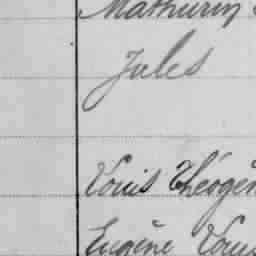 Mathurin
Jules
Louis Théogèn
Eugène Louis